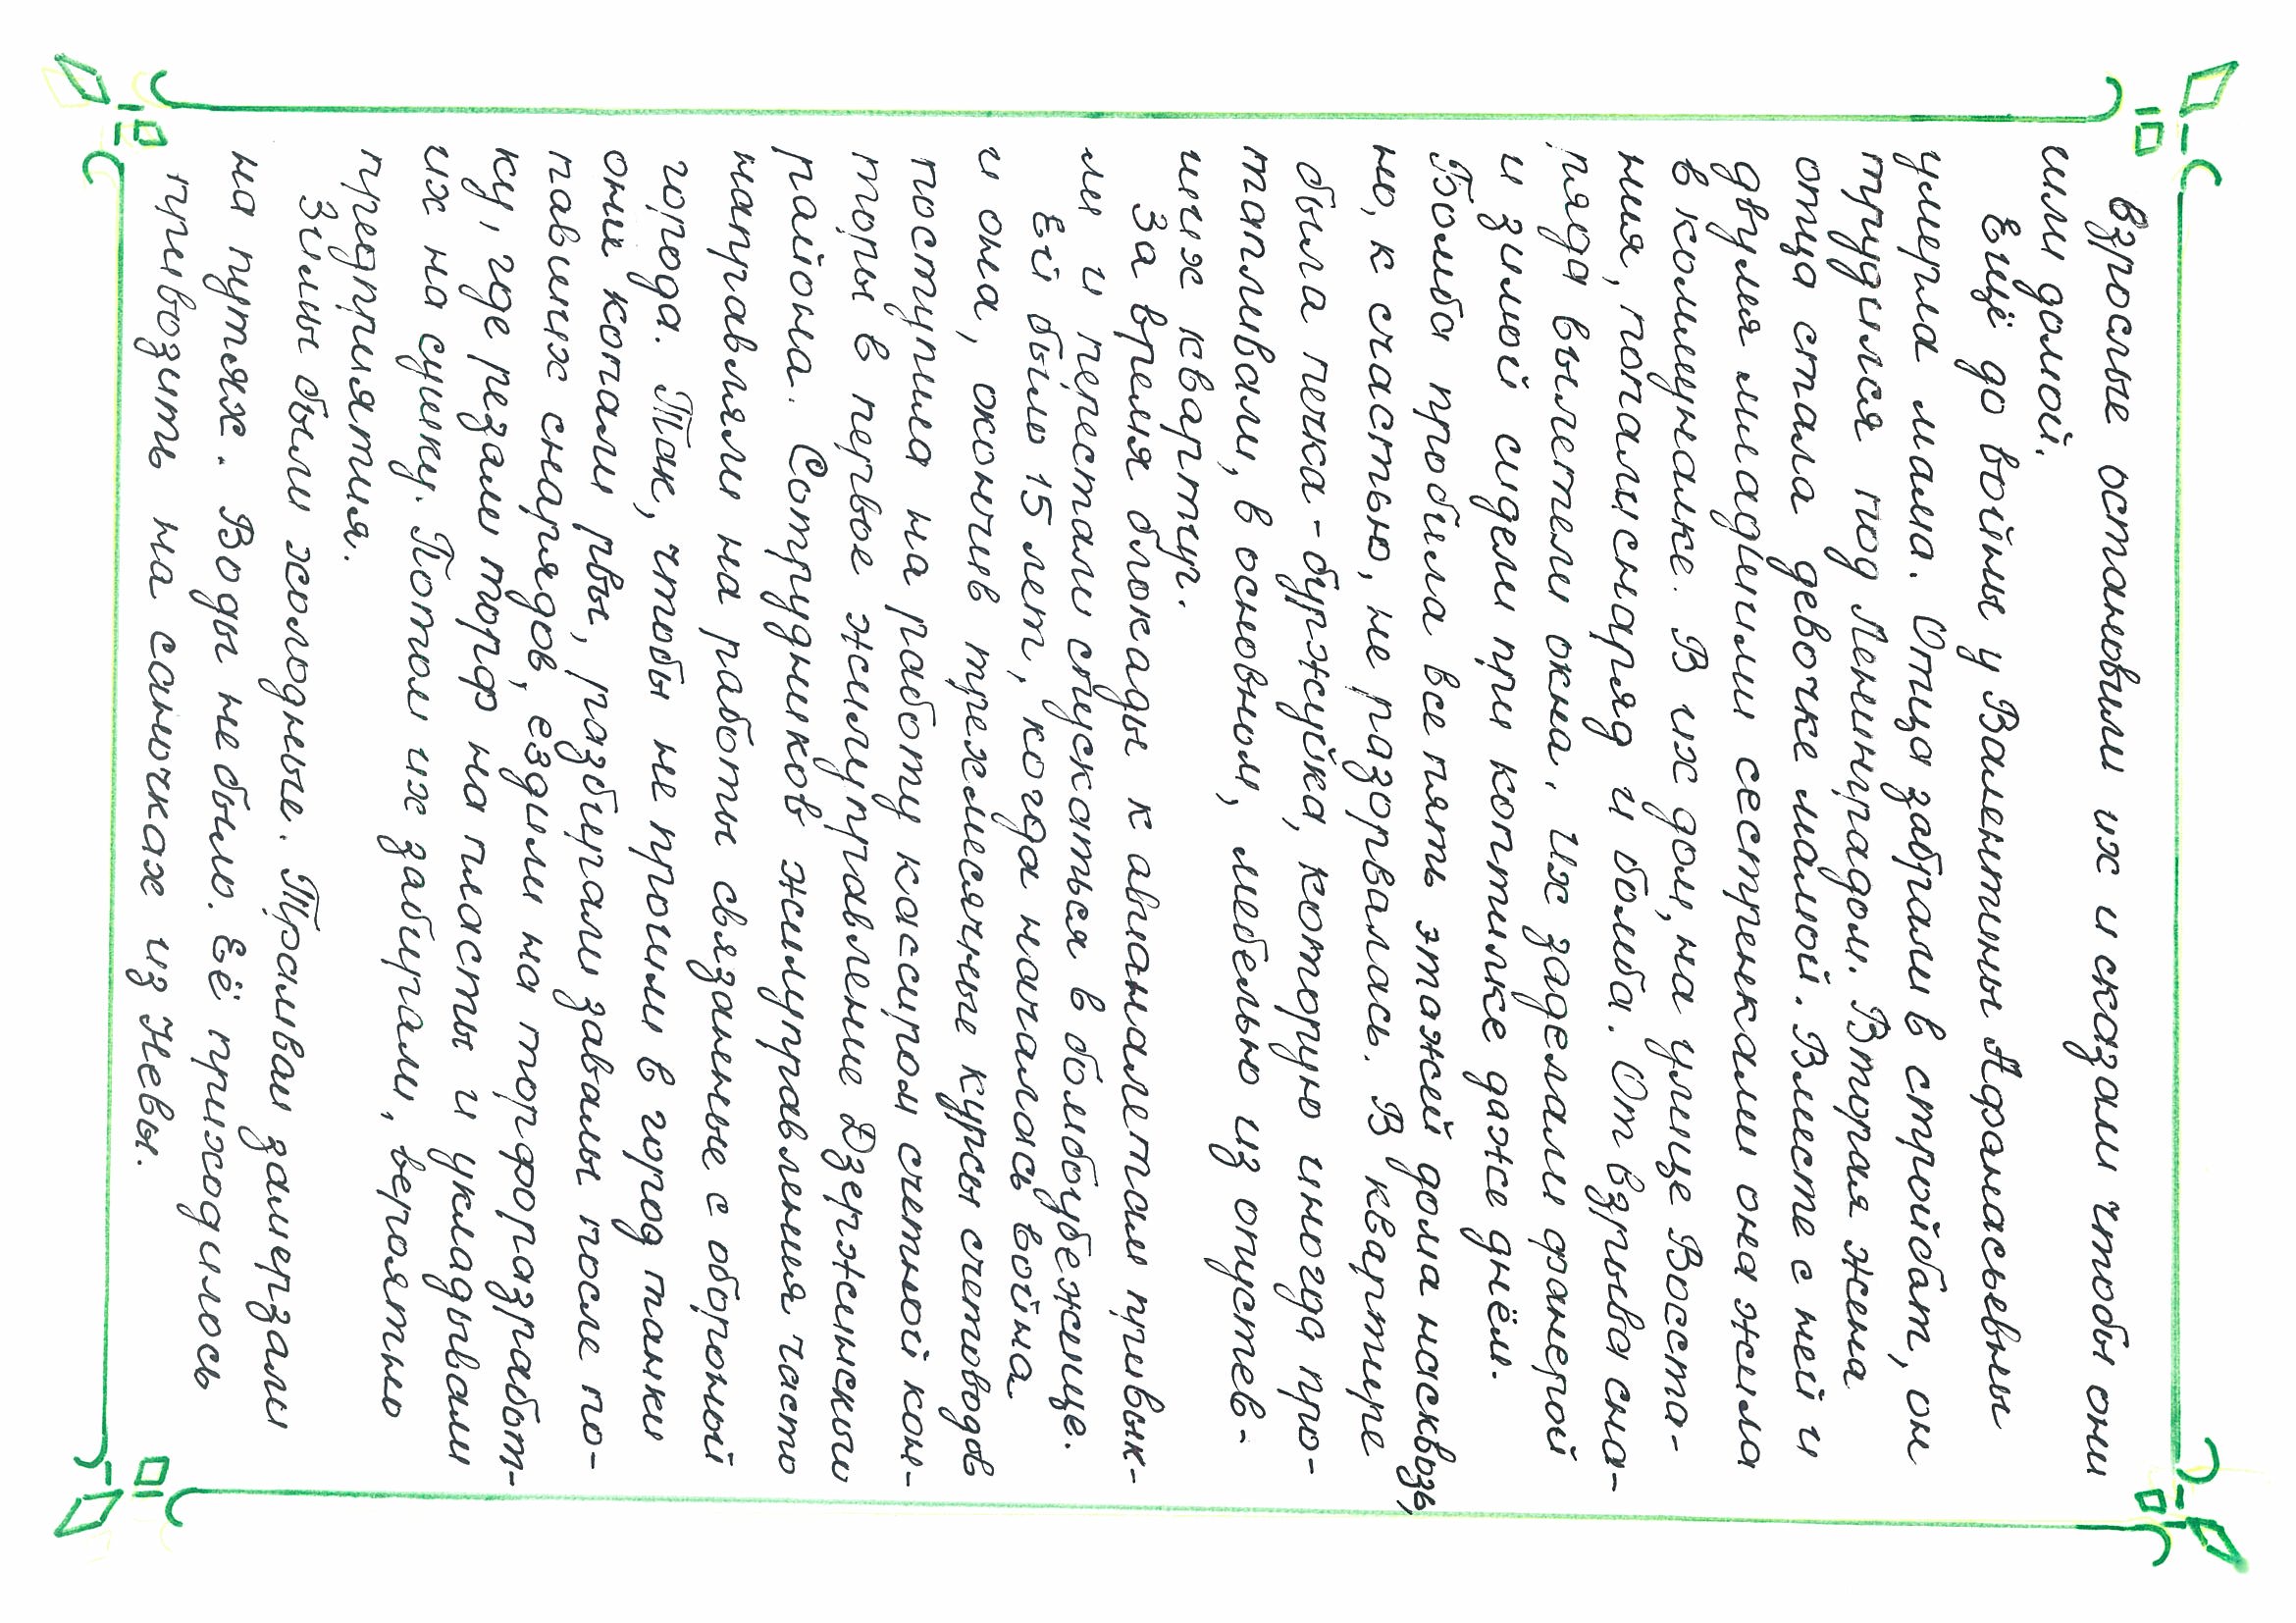 Взрослые остановили их и сказали чтобы они
шли домой.
Ещё до войны у Валентины Афанасьевны
умерла мама. Отца забрали в стройбат, он
трудился под Ленинградом. Вторая жена
отца стала девочке мамой. Вместе с ней и
двумя младшими сестренками она жила
в коммуналке. В их дом, на улице Восста-
ния, попали снаряд и бомба. От взрыва сна-
ряда вылетели окна. Их заделали фанерой
и зимой сидели при коптилке даже днём.
Бомба пробила все пять этажей дома насквозь,
но, к счастью, не разорвалась. В квартире
была печка-буржуйка, которую иногда про-
тапливали, в основном, мебелью из опустев-
ших квартир.
За время блокады к авианалетам привык-
ли и перестали спускаться в бомбоубежище.
Ей было 15 лет, когда началась война
и она, окончив трехмесячные курсы счетоводов
поступила на работу кассиром счетной кон-
торы в первое жилуправление Дзержинский
района. Сотрудников жилуправления часто
направляли на работы связанные с обороной
города. Так, чтобы не прошли в город танки
они копали рвы, разбирали завалы после по-
павших снарядов, ездили на торфоразработ-
ку, где резали торф на пласты и укладывали
их на сушку. Потом их забирали, вероятно
предприятия.
Зимы были холодные. Трамваи замерзали
на путях. Воды не было. Её приходилось
привозить на саночках из Невы.